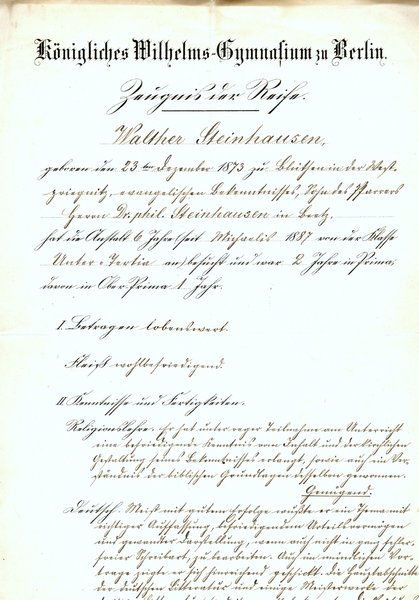 Königliches Wilhelms-Gymnasium zu Berlin.
Zeugnis der Reife.
Walther Steinhausen,
geboren den 23ten Dezember 1873 zu Blüthen in der West-
priegnitz, evangelischen Bekenntnisses, Sohn des Pfarrers
Herrn Dr. phil. Steinhausen in Beetz,
hat die Anstalt 6 Jahre (seit Michaelis 1887 von der Klasse
Unter-Tertia an) besucht und war 2 Jahre in Prima,
davon in Ober-Prima 1 Jahr.
I. Betragen lobenswert.
Fleiß wohlbefriedigend.
II. Kenntnisse und Fertigkeiten.
Religionslehre. Er hat unter reger Teilnahme am Unterricht
eine befriedigende Kenntnis vom Inhalt und der kirchlichen
Gestaltung seines Bekenntnisses erlangt, sowie auch ein Ver-
ständnis der biblischen Grundlagen desselben gewonnen.
Genügend.
Deutsch. Meist mit gutem Erfolge wußte er ein Thema mit
richtiger Auffassung, befriedigendem Urteilsvermögen
und gewandter Darstellung, wenn auch nicht in ganz fehler-
freier Schreibart, zu bearbeiten. Auch im mündlichen Vor-
trage zeigte er sich hinreichend geschickt. Die Hauptabschnitte
der deutschen Litteratur und einige Meisterwerke der